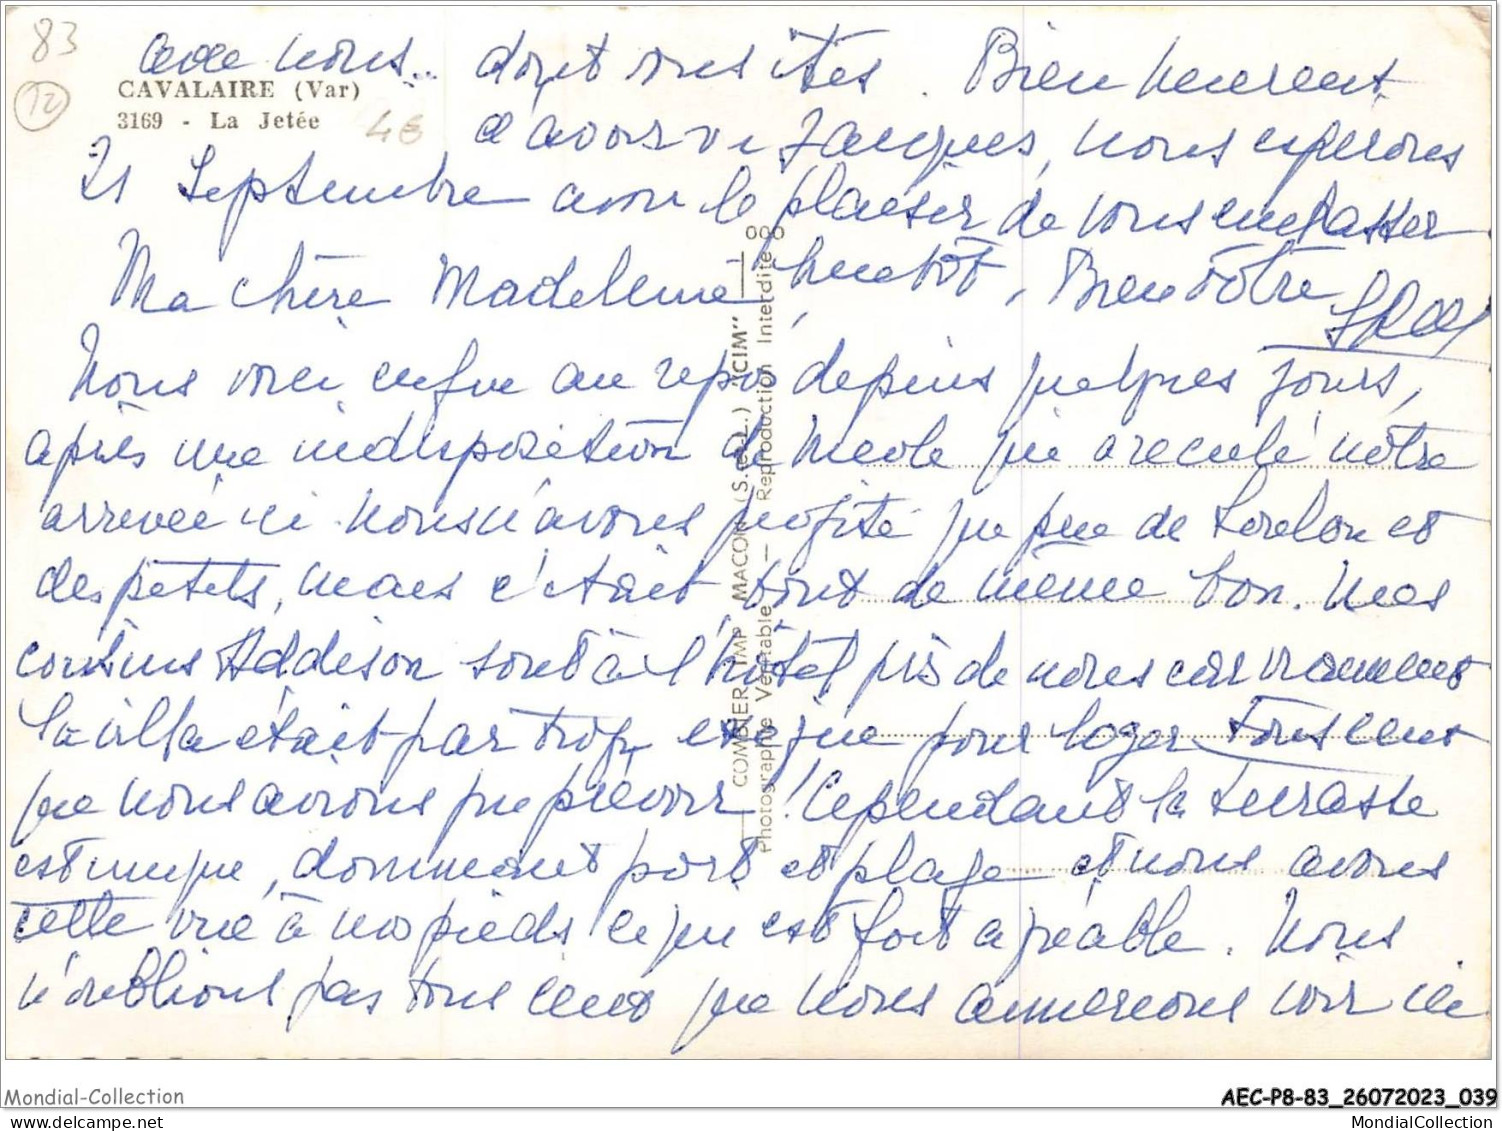 83
12
CAVALAIRE (Var)
3169 - La Jetée
4€
21 Septembre
Ma chère Madeleine,
Nous voici enfin au repos depuis quelques jours,
après une indisposition de Nicole qui a reculé nôtre
arrivée ici. Nous n'avons profité que peu de et
des petits, mais c'était tout de même bon. Mes
cousins Addison sont à l'hôtel près de nous car vraiment
la villa était par trop exigüe pour loger tous ceux
que nous avions pu prévoir! Cependant la terrasse
est unique, dominant port et plage et nous avons
cette vue à nos pieds ce qui est fort agréable. Nous
n'oublions pas tous ceux que nous aimerions voir ici
avec nous.. dont vous êtes. Bien heureux
d'avoir vu Jacques, nous espérons
avoir le plaisir de vous embrasser
bientôt, Bien vôtre
COMBIER IMP. MACON (S.-et-L.) "CIM"
Photographie Véritable — Reproduction Interdite
Mondial-Collection
AEC-P8-83_26072023_039
MondialCollection